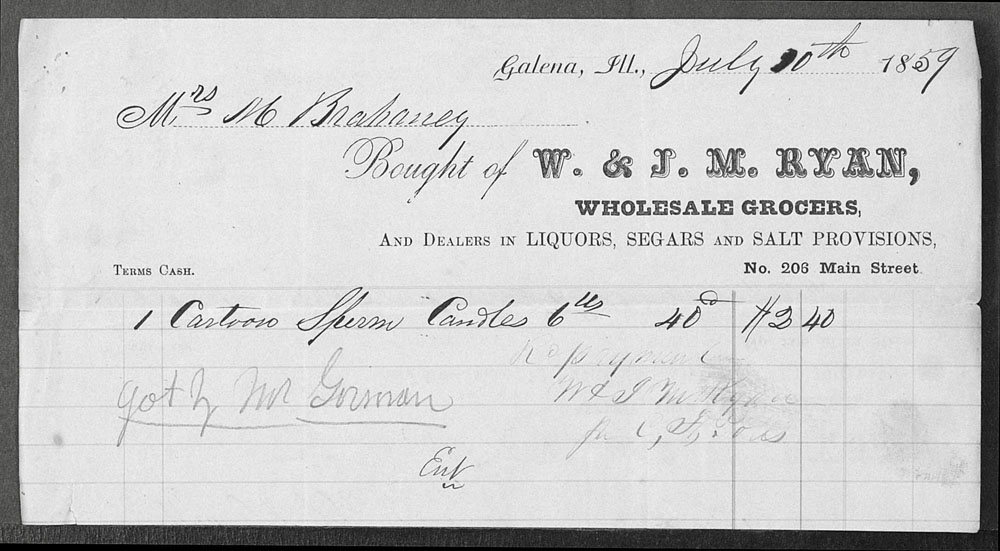 Galena, Ill., July 10th 1859
Mrs M Brahaney
Bought of W. & J. M. RYAN,
WHOLESALE GROCERS,
AND DEALERS IN LIQUORS, SEGARS AND SALT PROVISIONS,
TERMS CASH.
No. 206 Main Street
1 Cartoon Sperm Candles 6 lbs 40 $2 40
Rc payment
got by Mr Gorman
W & J M Ryan
Ent